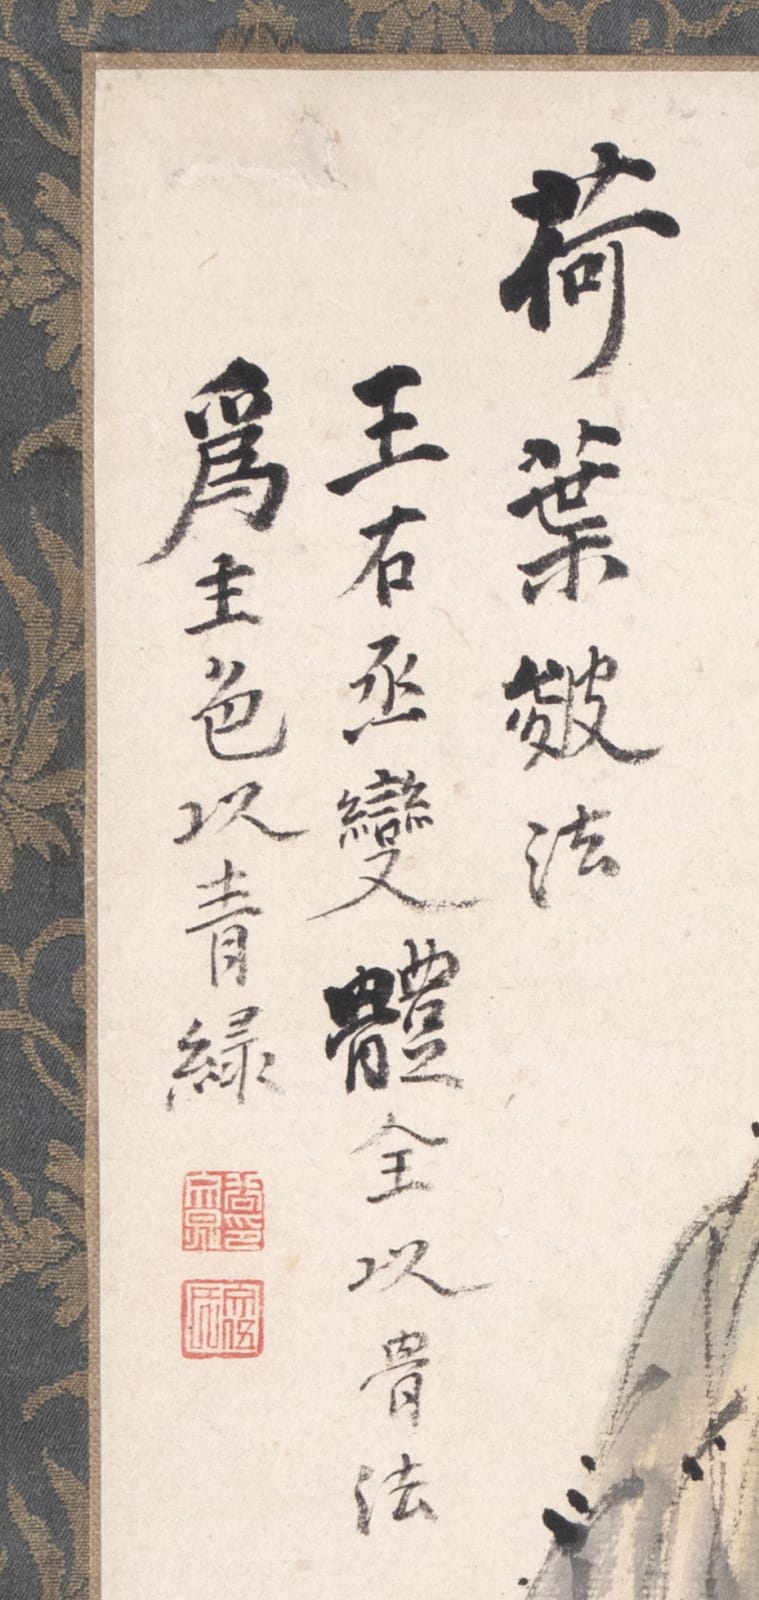 荷葉皴法
王右丞變體全以骨法
爲主色以青綠